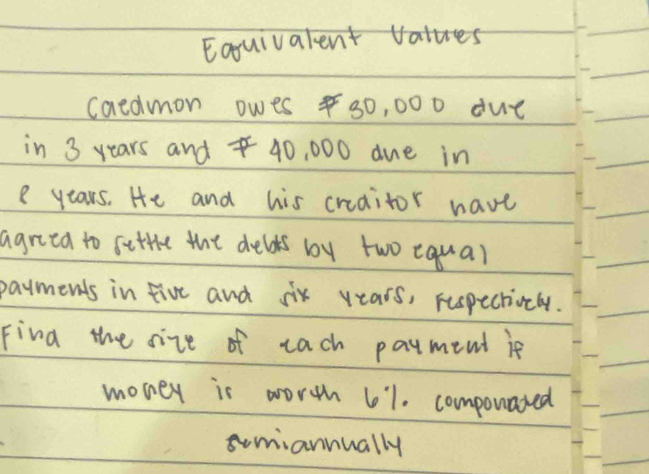 Equivalent Values
Caedmon owes ₱30,000 due
in 3 years and ₱40,000 due in
8 years. He and his creditor have
agreed to settle the debts by two equal
payments in five and six years, respectively.
Find the size of each payment if
money is worth 6% compounded
semiannually